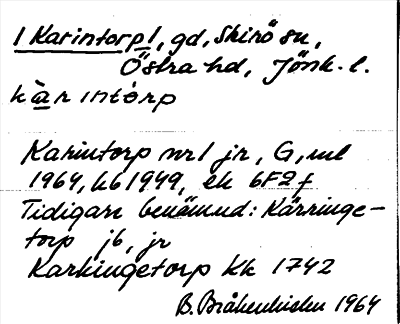 1 Karintorp 1, gd, Skirö sn,
Östra hd, Jönk. l.
kàrintórp
Karintorp nr 1 jr, G, ml
1964, hb 1949, ek 6F2f
Tidigare benämnd: Kärringe-
torp jb, jr
Karhingetorp kk 1742
B. Bråkenhielm 1964